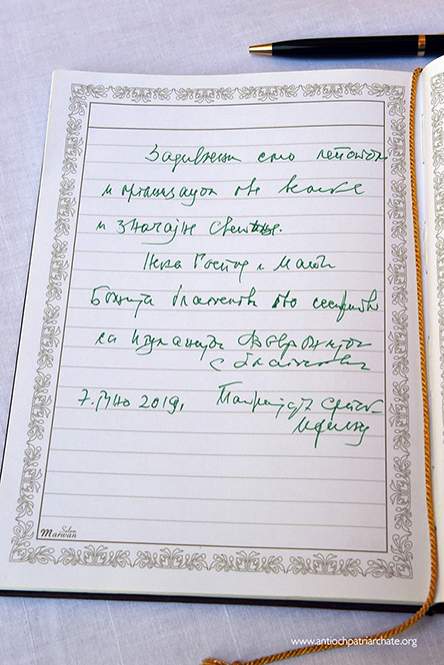 Задивљени смо лепотом
и организацијом ове велике
и значајне Светиње.
Нека Господ и Мати
Божија благослови ово
са игуманијом Февронијом
с благословом
2019, Патријарх српски
Иринеј
Marwan
www.antiochpatriarchate.org